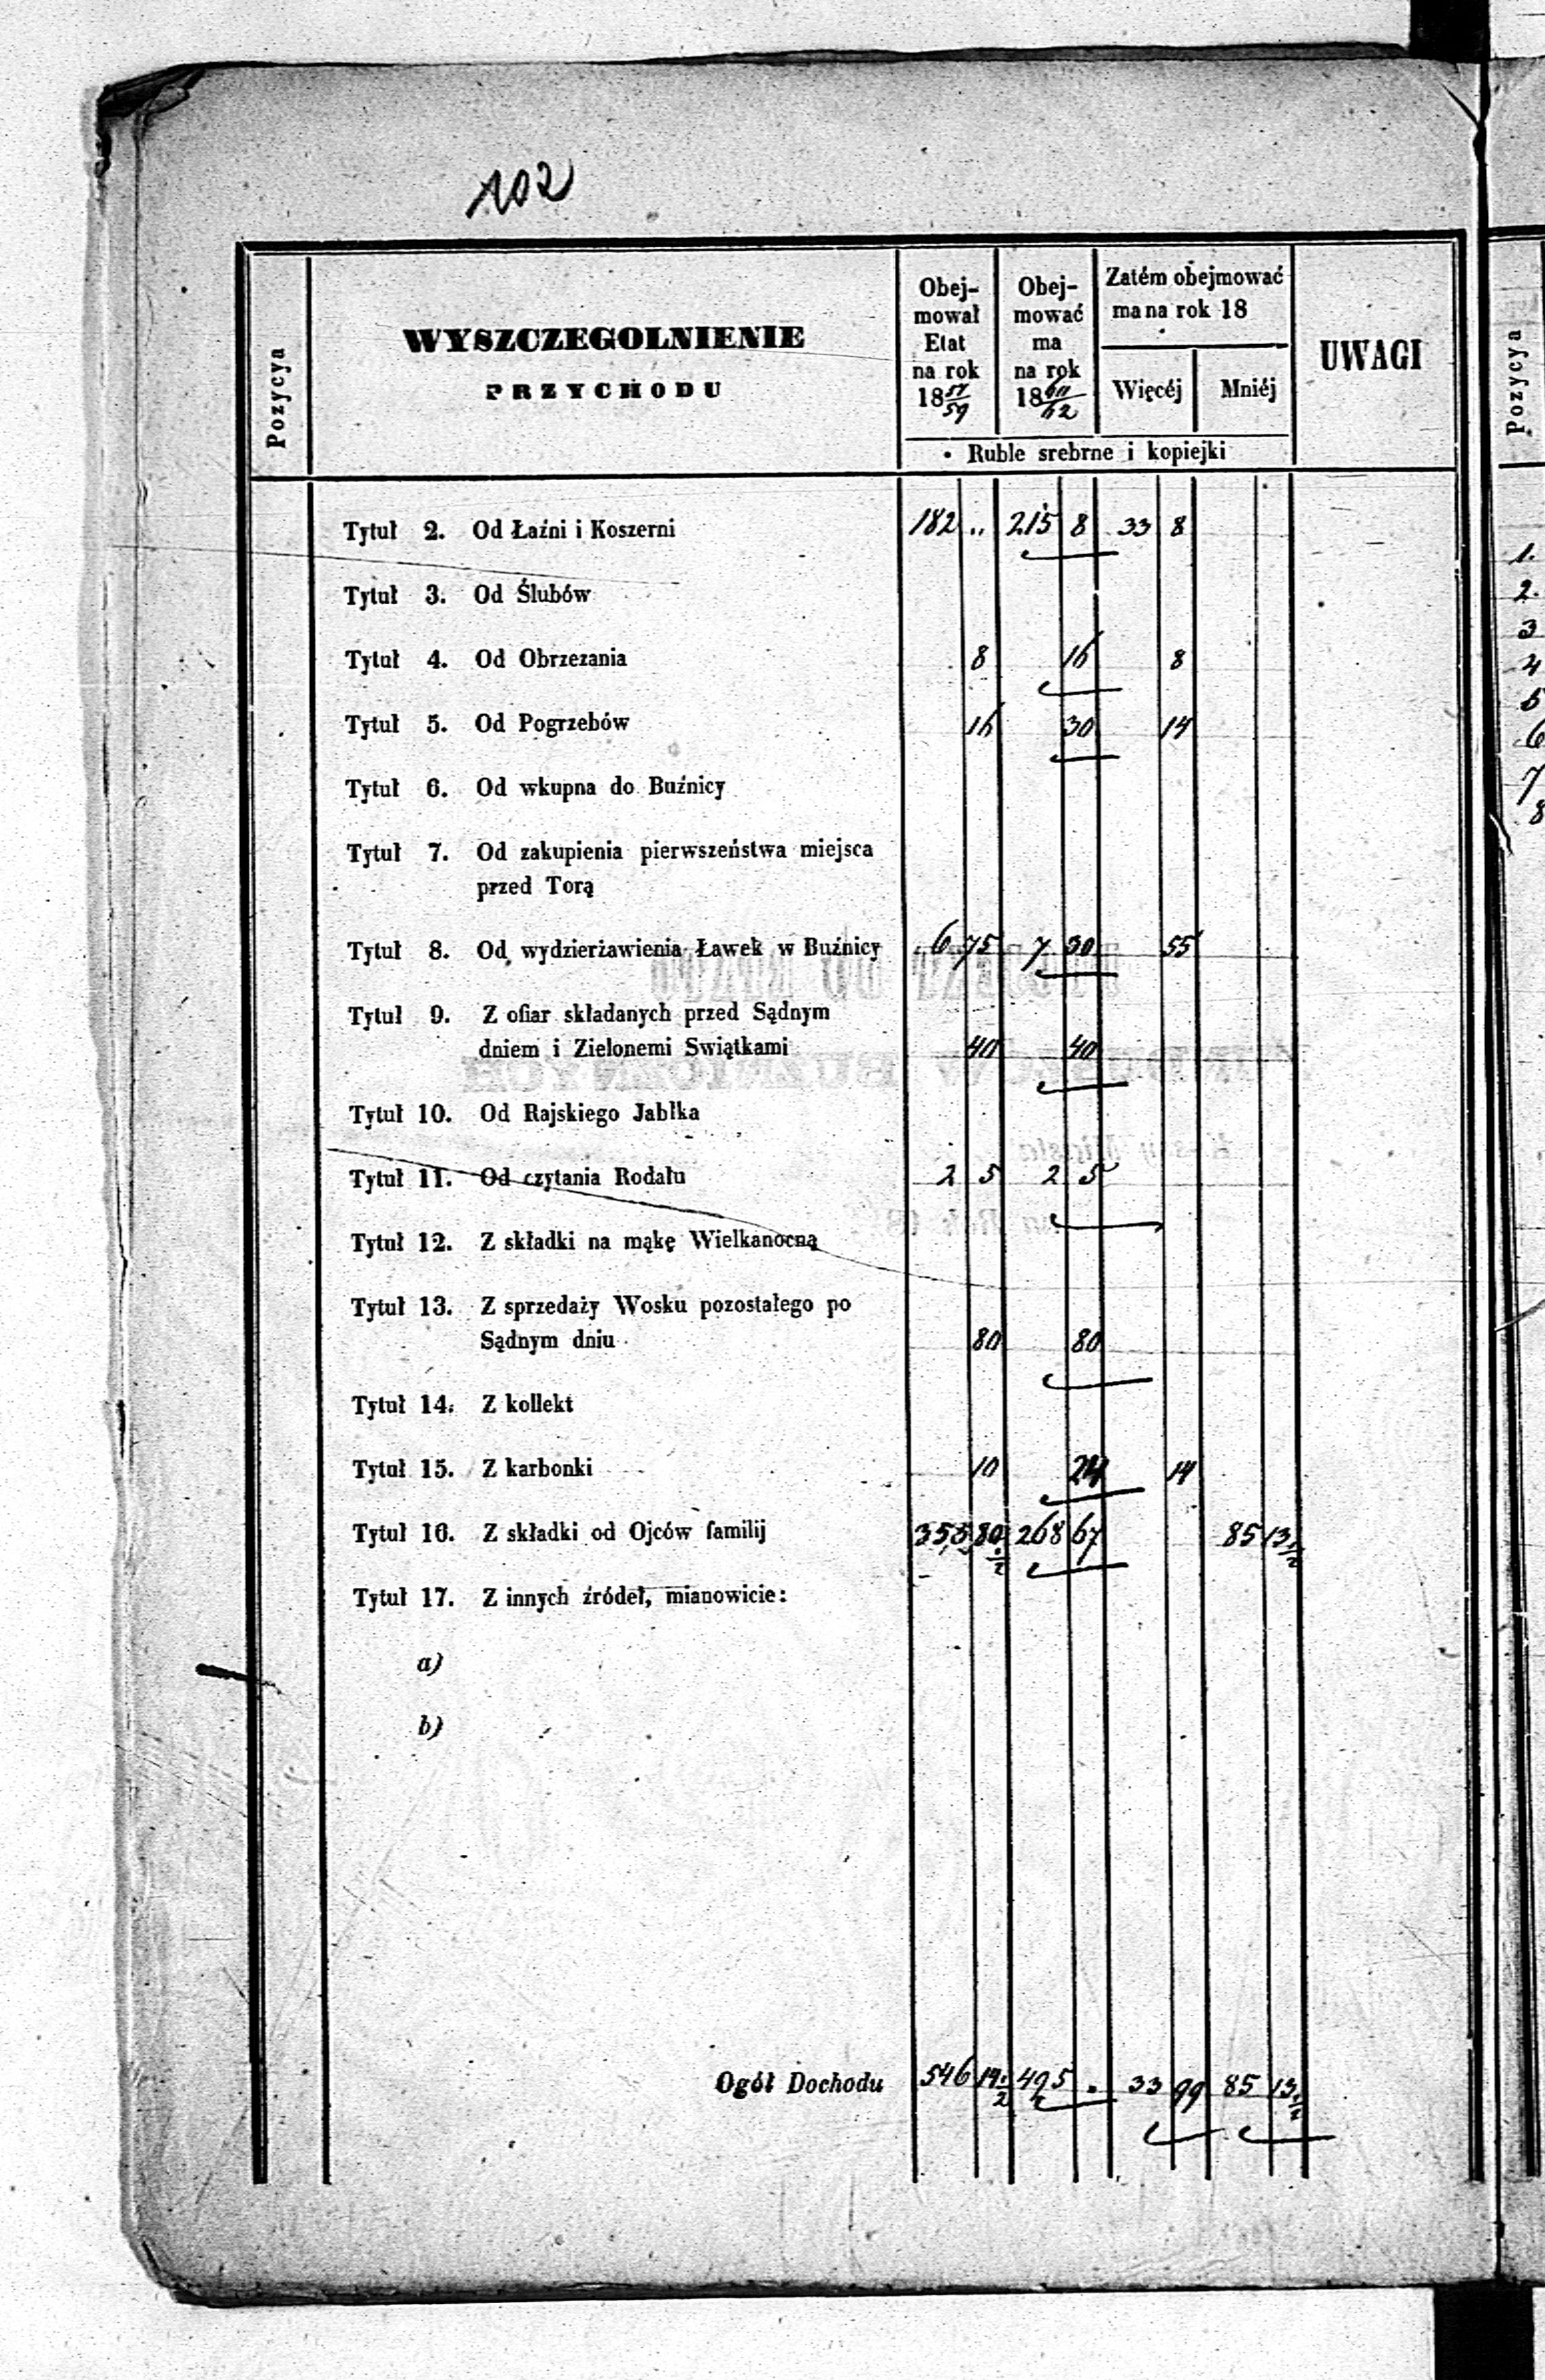 102
Pozycya
WYSZCZEGOLNIENIE
PRZYCHODU
Obej-
mował
Etat
na rok
18 57/59
Obej-
mować
ma
na rok
18 60/62
Zatém obejmować
ma na rok 18
Więcéj
Mniéj
UWAGI
Ruble srebrne i kopiejki
Tytuł 2. Od Łaźni i Koszerni 182 .. 215 8 33 8
Tytuł 3. Od Ślubów
Tytuł 4. Od Obrzezania 8 16 8
Tytuł 5. Od Pogrzebów 16 30 14
Tytuł 6. Od wkupna do Buźnicy
Tytuł 7. Od zakupienia pierwszeństwa miejsca
przed Torą
Tytuł 8. Od wydzierżawienia Ławek w Buźnicy 6 75 7 30 55
Tytuł 9. Z ofiar składanych przed Sądnym
dniem i Zielonemi Swiątkami 40 40
Tytuł 10. Od Rajskiego Jabłka
Tytuł 11. Od czytania Rodału 2 5 2 5
Tytuł 12. Z składki na mąkę Wielkanocną
Tytuł 13. Z sprzedaży Wosku pozostałego po
Sądnym dniu 80 80
Tytuł 14. Z kollekt
Tytuł 15. Z karbonki 10 24 14
Tytuł 16. Z składki od Ojców familij 353 80 1/2 268 67 85 13 1/2
Tytuł 17. Z innych źródeł, mianowicie:
a)
b)
Ogół Dochodu 546 14 1/2 495 . 33 99 85 13 1/2
Pozycya
1.
2.
3
4
5
6
7
8